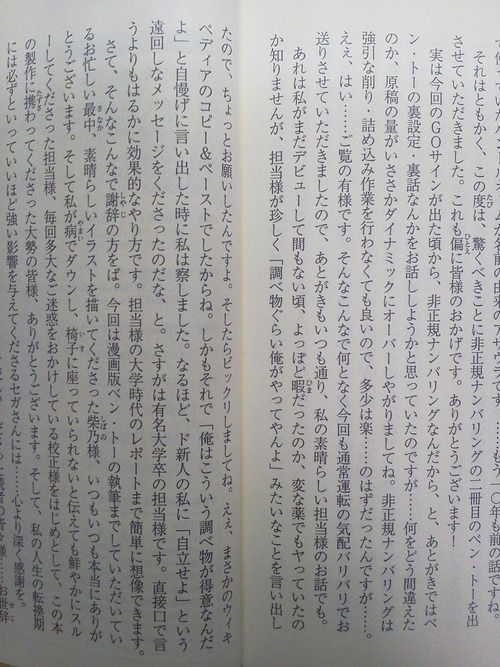 それはともかく、この度は、驚くべきことに非正規ナンバリングの二冊目のベン・トーを出
させていただきました。これも偏に皆様のおかげです。ありがとうございます！
実は今回のＧＯサインが出た頃から、非正規ナンバリングなんだから、と、あとがきではベ
ン・トーの裏設定・裏話なんかをお話ししようかと思っていたのですが……何をどう間違えた
のか、原稿の量がいささかダイナミックにオーバーしやがりましてね。非正規ナンバリングは
強引な削り・詰め込み作業を行わなくても良いので、多少は楽……のはずだったんですが……。
えぇ、はい……ご覧の有様です。そんなこんなで何となく今回も通常運転の気配バリバリでお
送りさせていただきましたので、あとがきもいつも通り、私の素晴らしい担当様のお話でも。
あれは私がまだデビューして間もない頃、よっぽど暇だったのか、変な薬でもヤっていたの
か知りませんが、担当様が珍しく「調べ物ぐらい俺がやってやんよ」みたいなことを言い出し
たので、ちょっとお願いしたんですよ。そしたらビックリしましてね。えぇ、まさかのウィキ
ペディアのコピー＆ペーストでしたからね。しかもそれで「俺はこういう調べ物が得意なんだ
よ」と自慢げに言い出した時に私は察しました。なるほど、ド新人の私に「自立せよ」という
遠回しなメッセージをくださったのだな、と。さすがは有名大学卒の担当様です。直接口で言
うよりもはるかに効果的なやり方です。担当様の大学時代のレポートまで簡単に想像できます。
さて、そんなこんなで謝辞の方をば。今回は漫画版ベン・トーの執筆までしていただいてい
るお忙しい最中、素晴らしいイラストを描いてくださった柴乃様、いつもいつも本当にありが
とうございます。そして私が病でダウンし、椅子に座っていられないと伝えても鮮やかにスル
ーしてくださった担当様、毎回多大なご迷惑をおかけしている校正様をはじめとして、この本
の製作に携わってくださった大勢の皆様、ありがとうございます。そして、私の人生の転換期
には必ずといっていいほど強い影響を与えてくださるセガさんには……心より深く感謝を。